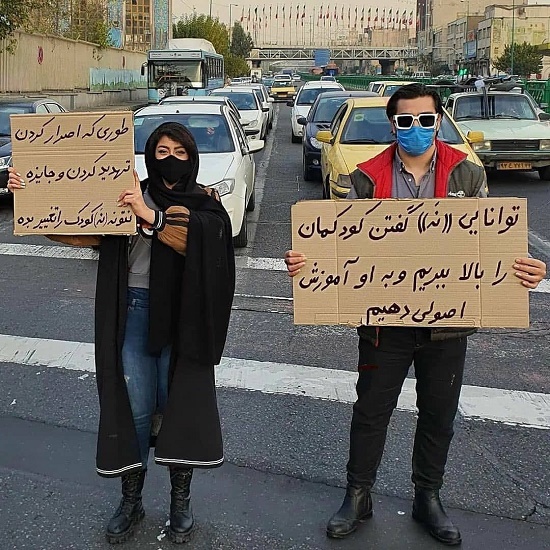 توانایی «نَه» گفتن کودکمان
را بالا ببریم و به او آموزش
اصولی دهیم
طوری که اصرار کردن
تهدید کردن و جایزه
نتونه (نه) کودک را تغییر بده